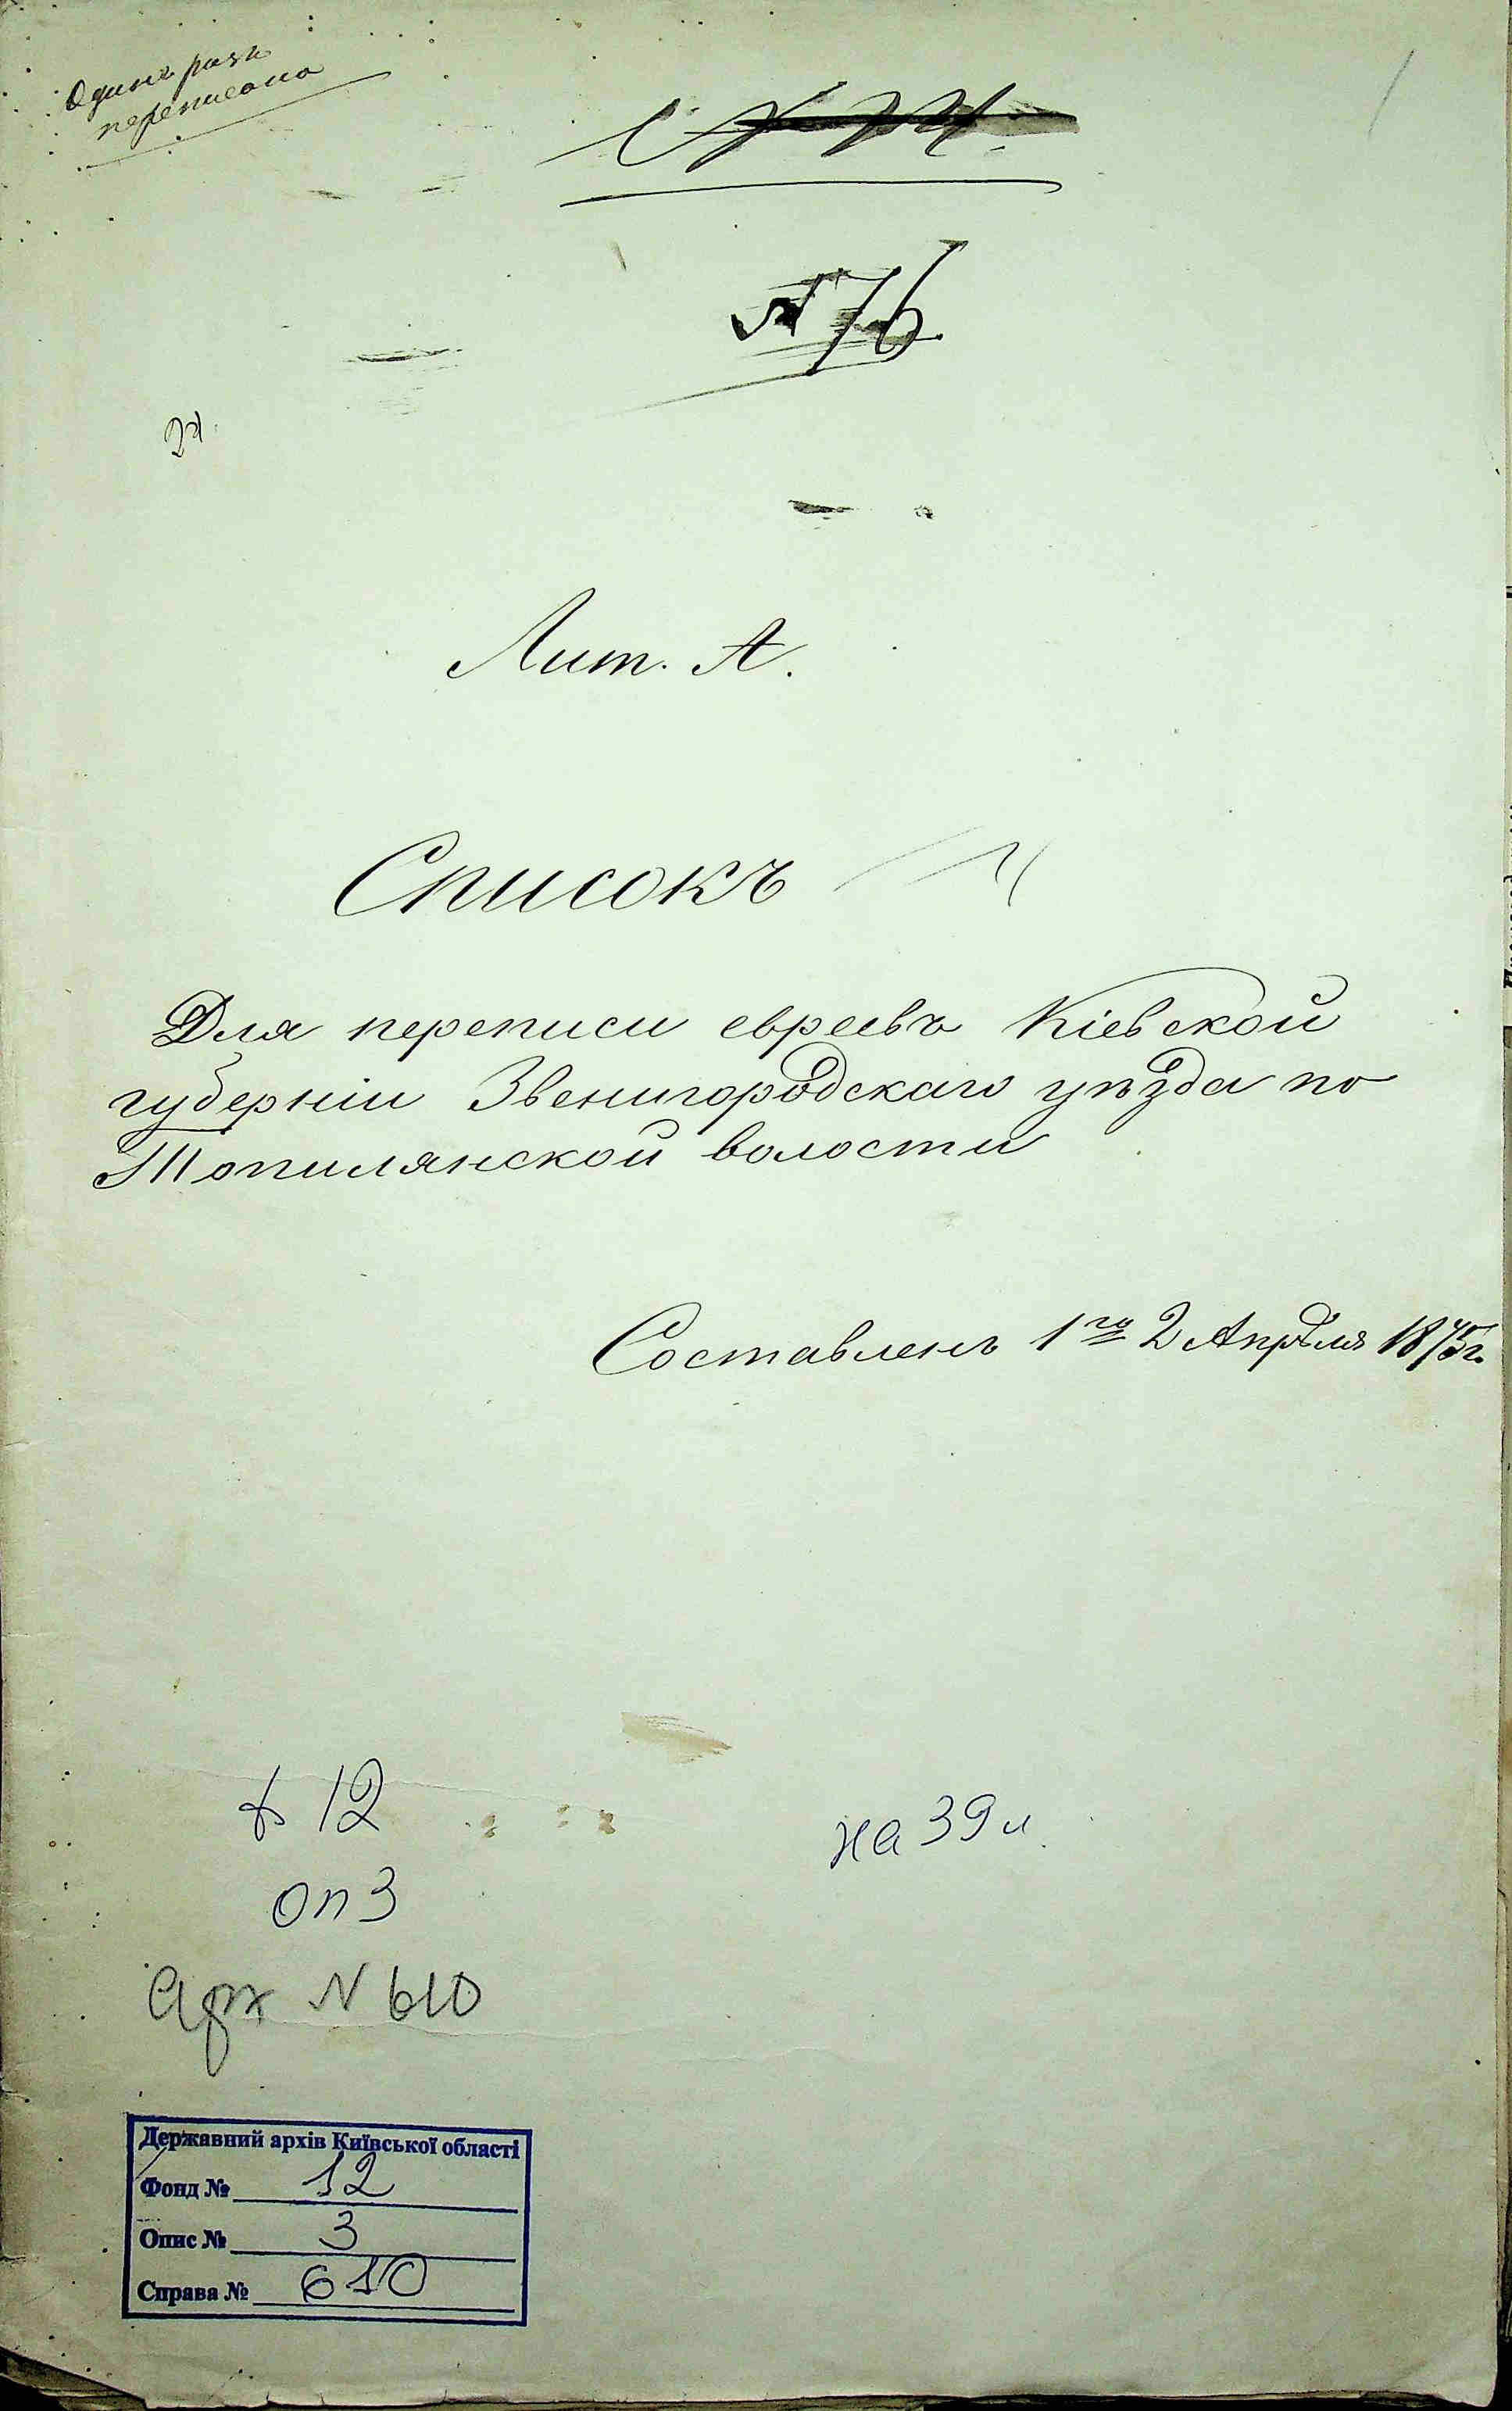 Одинъ разъ
переписано
№ 76.
Лит. А.
Списокъ
Для переписи евреевъ Кіевской
губерніи Звенигородскаго уѣзда по
Топилянской волости
Составленъ 1го 2 Апрѣля 1875г.
ф 12
на 39 л.
оп 3
арх N 610
Державний архів Київської області
Фонд № 12
Опис № 3
Справа № 610